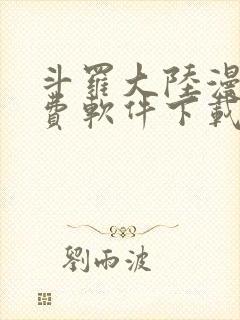 斗羅大陸漫
費軟件下載
劉雨波